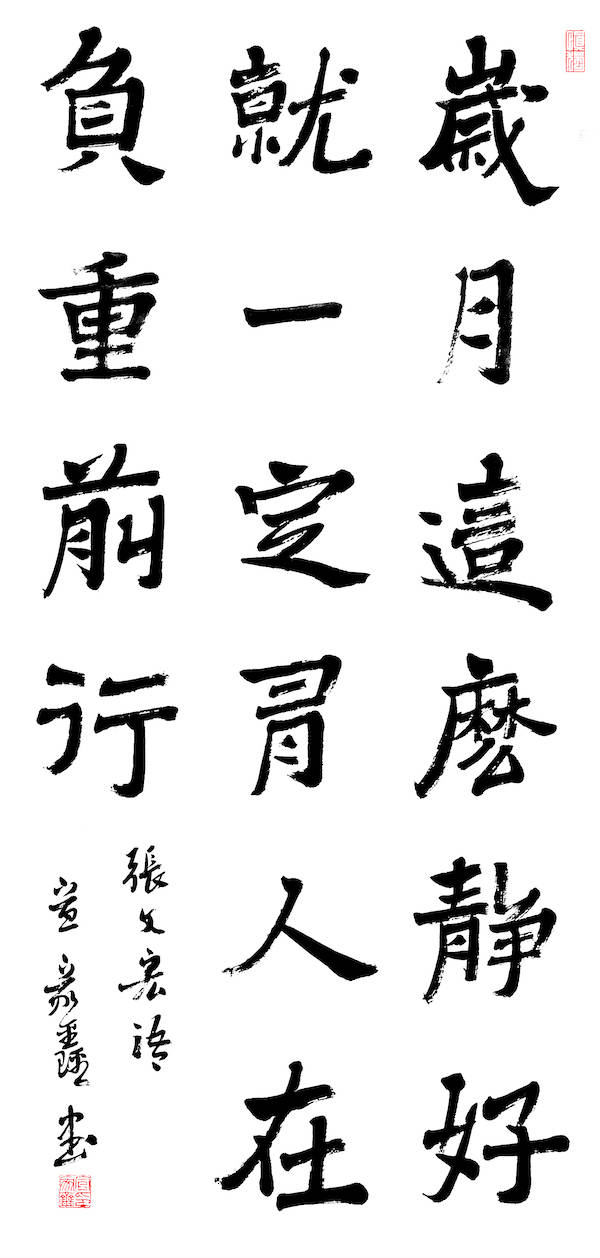 歲月這麼靜好
就一定有人在
負重前行
張文宏語
宣家鑫書